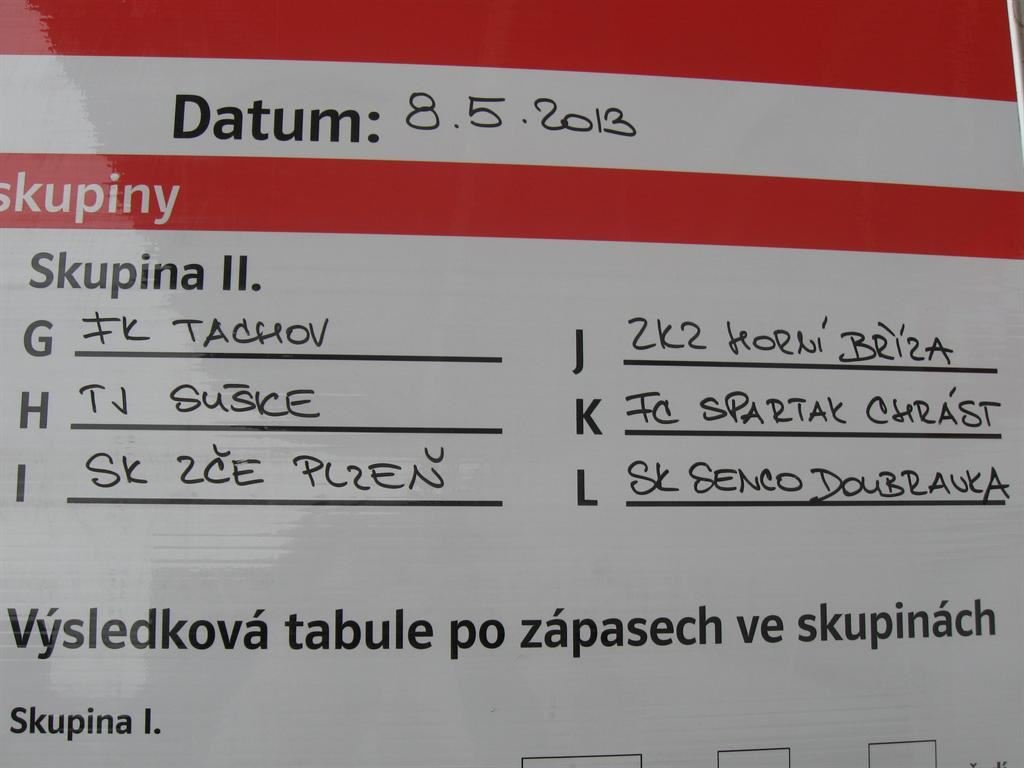 Datum: 8.5.2013
skupiny
Skupina II.
G FK TACHOV
H TJ SUŠICE
I SK ZČE PLZEŇ
J ZKZ HORNÍ BŘÍZA
K FC SPARTAK CHRÁST
L SK SENCO DOUBRAVKA
Výsledková tabule po zápasech ve skupinách
Skupina I.